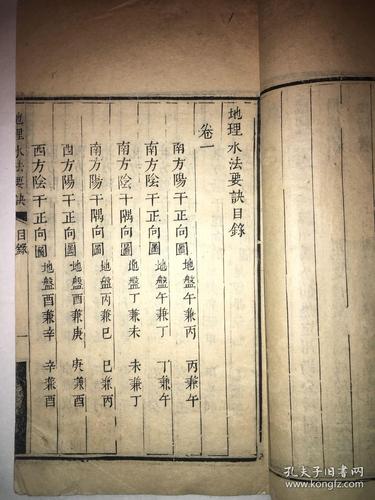 地理水法要訣目錄
卷一
南方陽干正向圖 地盤午兼丙 丙兼午
南方陰干正向圖 地盤午兼丁 丁兼午
南方陰干隅向圖 地盤丁兼未 未兼丁
南方陽干隅向圖 地盤丙兼巳 巳兼丙
酉方陽干正向圖 地盤酉兼庚 庚兼酉
西方陰干正向圖 地盤酉兼辛 辛兼酉
地理水法要訣 目錄 一
孔夫子旧书网
www.kongfz.com